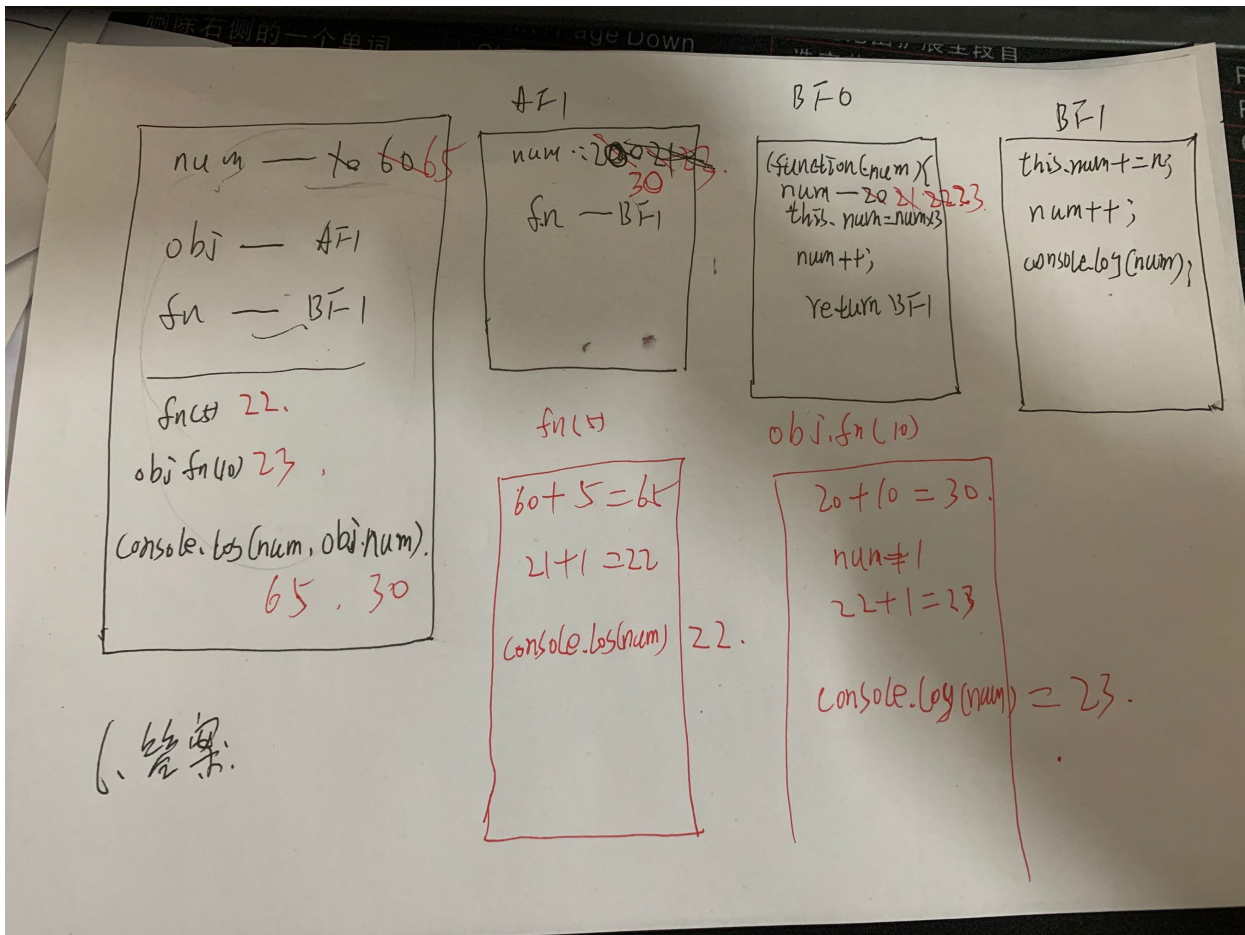 删除右侧的一个单词
Page Down
num — 10 60 65
obj — AF1
fn — BF1
fn(5) 22.
obj fn(10) 23.
console.log(num, obj.num).
65. 30
AF1
num: 20
30
fn — BF1
BF0
(function(num){
num — 20 21 22 23.
this.num=num*3
num++;
return BF1
BF1
this.num+=n;
num++;
console.log(num);
fn(5)
60+5=65
21+1=22
console.log(num) 22.
obj.fn(10)
20+10=30.
22+1=23
console.log(num) = 23.
6、答案: